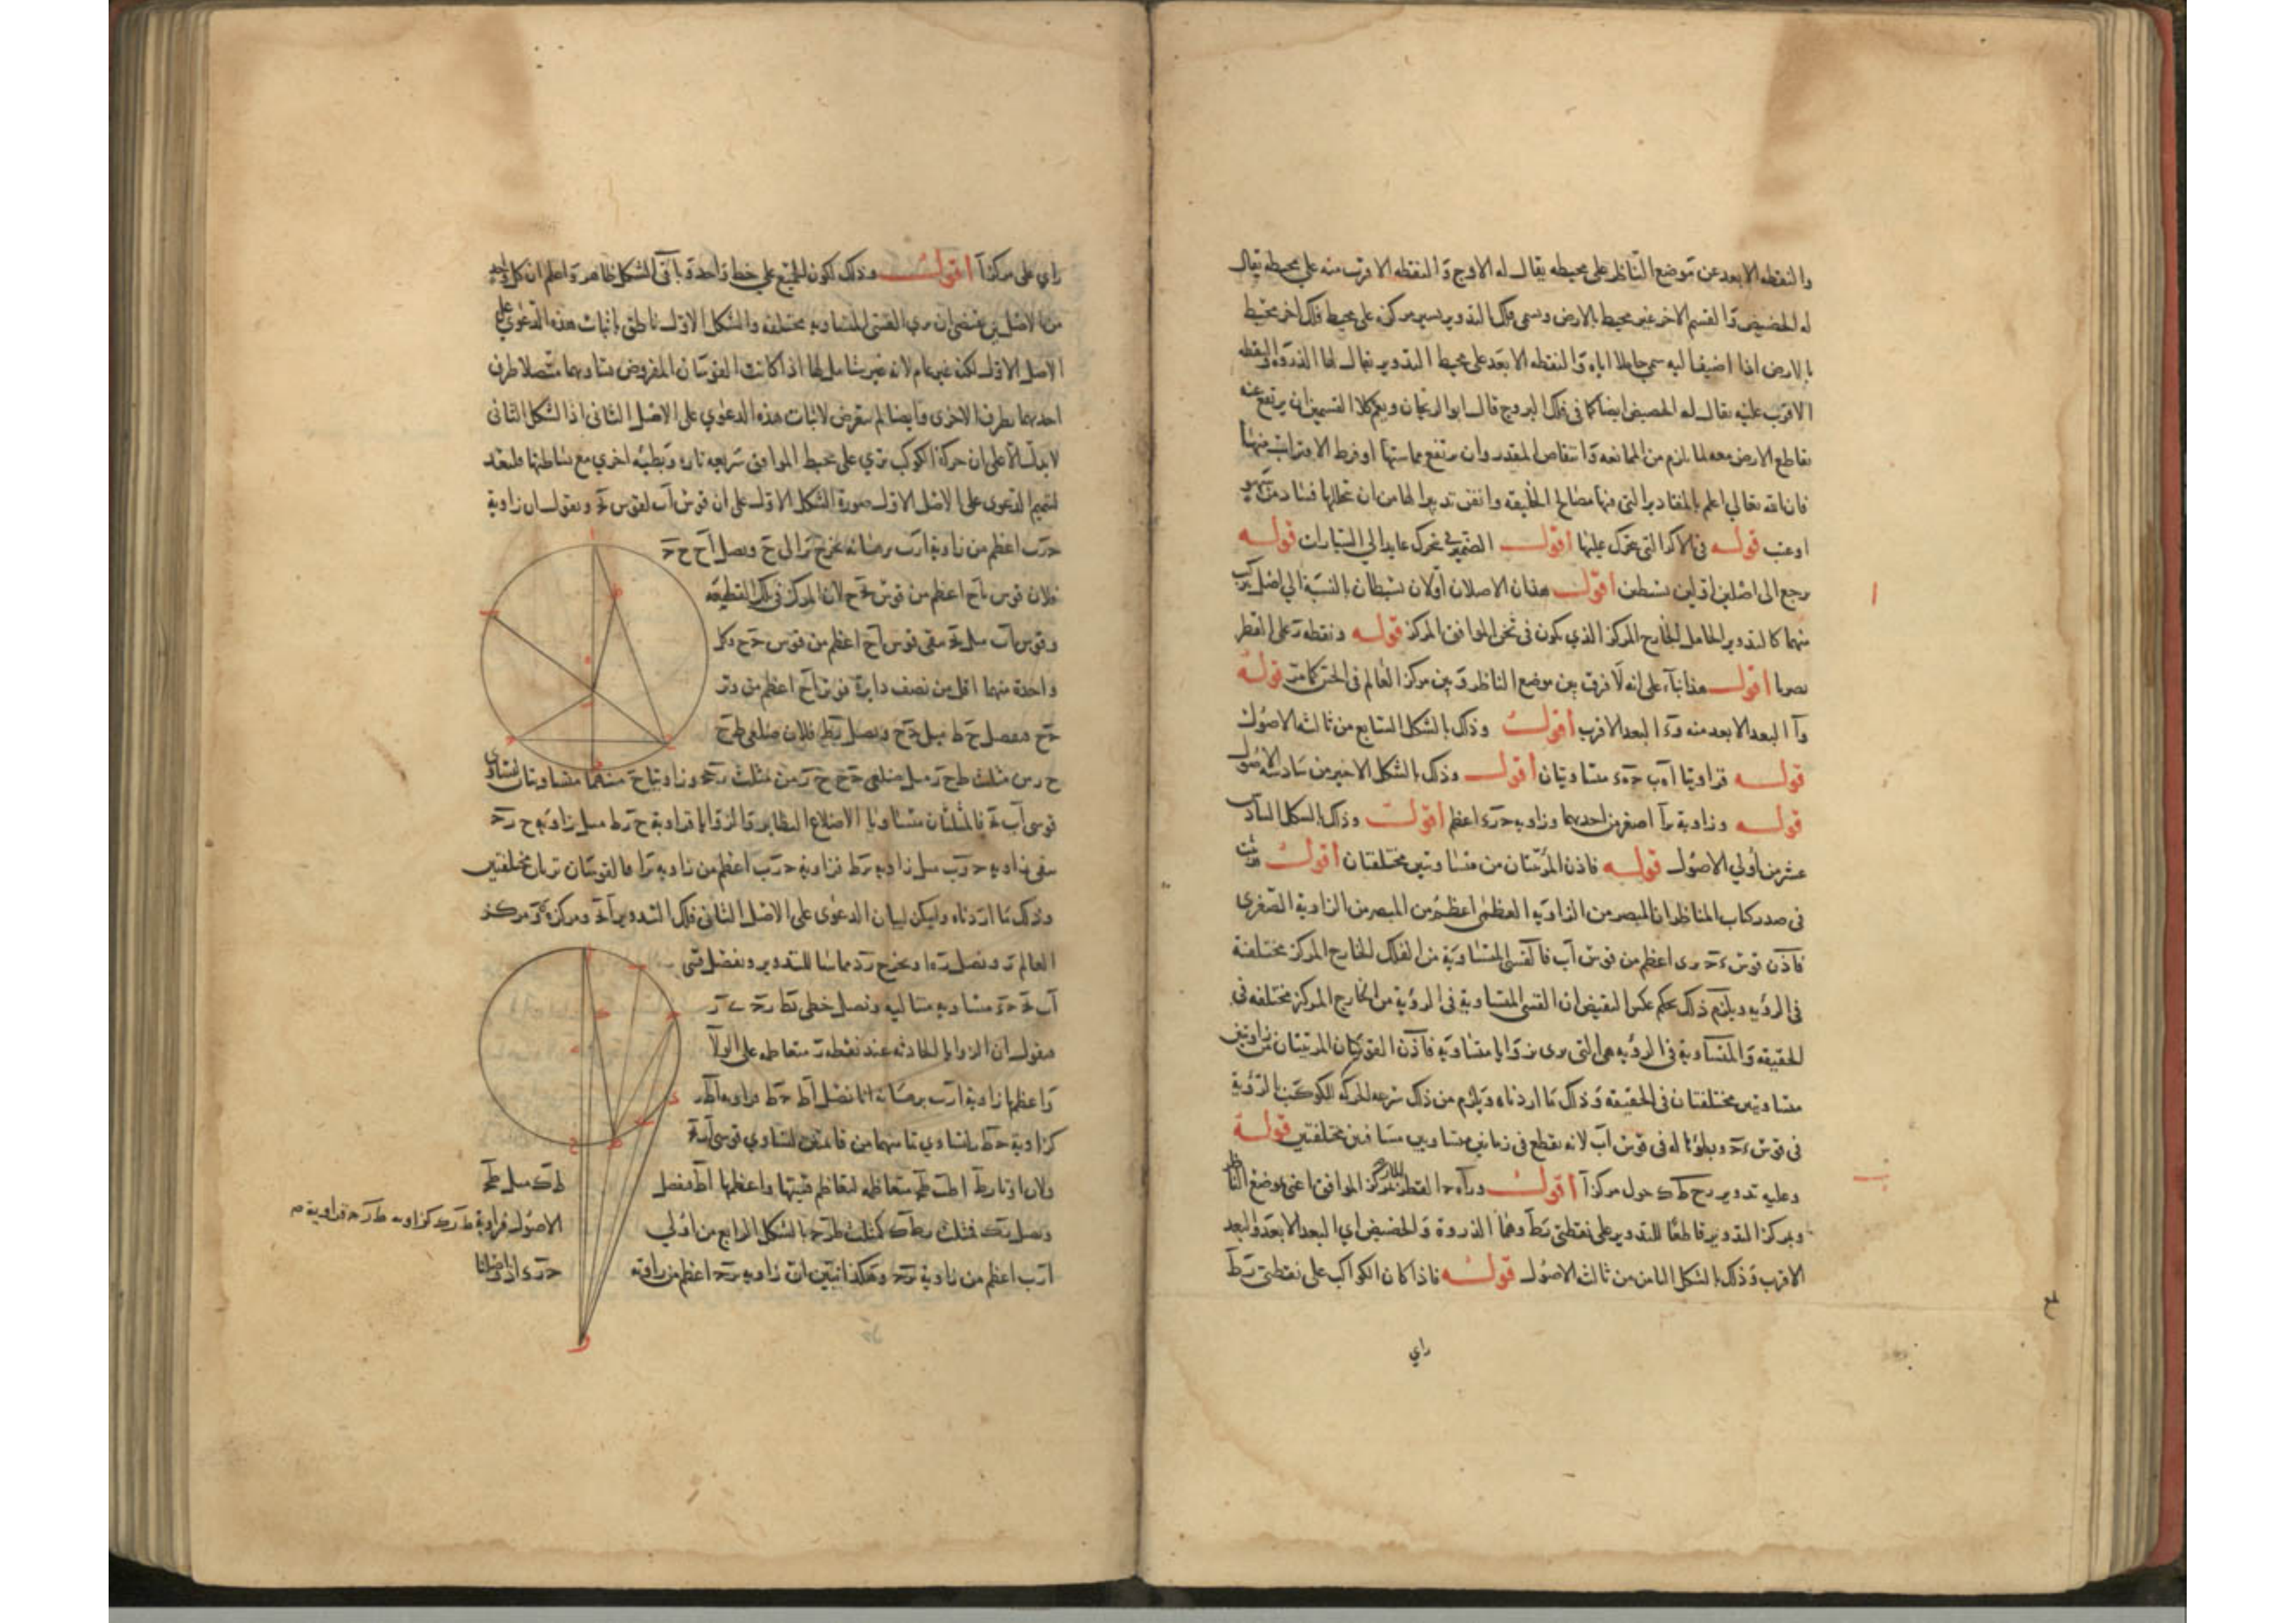 والنقطه الابعد عن موضع الناظر على محيطه يقال له الاوج والنقطه الاقرب منه على محيطه يقال
له الحضيض والقسم الاخر غير محيط بالارض ويسمى فلك التدوير يسير مركزه على محيط فلك اخر محيط
بالارض اذا اضيف اليه سمي حاملا اياه والنقطه الابعد على محيط التدوير يقال لها الذروة والنقطه
الاقرب عليه يقال له الحضيض ايضا كما في فلك البروج قال ابو الريحان ويعم كلا القسمين ان يرتفع عنه
تقاطع الارض معه لما يلزم من الممانعه وانتقاص المقدر وان يرتفع مماستها او فرط الاقتراب منها
فان الله تعالي اعلم بالمقادير التي فيها مصالح الخليقه واتقن تدبيرا لها من ان يخللها فساد من سهو
او عبث قوله في الاكر التي تتحرك عليها اقول الضمير في تتحرك عايد الي السيارات قوله
يرجع الى اصلين اولين بسيطين اقول هذان الاصلان اولان بسيطان بالنسبة الي اصل يركب
منهما كالتدوير الحامل الخارج المركز الذي يكون في ثخن الموافق المركز قوله ونقطه ر على القطر
بصرنا اقول هذا بناء على انه لا فرق بين موضع الناظر وبين مركز العالم في الحس كما مر قوله
و ر ا البعد الابعد منه و ر ء البعد الاقرب اقول وذلك بالشكل السابع من ثالثه الاصول
قوله فزاويتا ا ه ب ح ه ء متساويتان اقول وذلك بالشكل الاخير من سادسه الاصول
قوله وزاوية ر ا اصغر من احديهما وزاويه ح ر ء اعظم اقول وذلك بالشكل السادس
عشر من أولي الاصول قوله فاذن المرئيتان من متساويتين مختلفتان اقول
في صدر كتاب المناظر ان المبصر من الزاويه العظمى اعظم من المبصر من الزاوية الصغري
فاذن قوس ء ح يرى اعظم من قوس اب فالقسي المتساوية من الفلك الخارج المركز مختلفة
في الرؤيه ويلزم ذلك بحكم عكس النقيض ان القسي المتساوية في الرؤية من الخارج المركز مختلفه في
الحقيقه والمتساوية في الرؤيه هي التي يرى من زوايا متساويه فاذن القوسان المرئيتان من زاويتين
متساويتين مختلفتان في الحقيقه وذلك ما اردناه ويلزم من ذلك سرعه الحركه للكوكب بالرؤية
في قوس ء ح وبطؤها له في قوس اب لانه يقطع في زمانين متساويين مسافتين مختلفتين قوله
وعليه تدوير ر ح ط ك حول مركز ا اقول و ر ا ه ح القطر المار بمركز الموافق اعني موضع الناظر
وبمركز التدوير قاطعا للتدوير على نقطتي ر ط وهما الذروة والحضيض اي البعد الابعد والبعد
الاقرب وذلك بالشكل الثامن من ثالث الاصول قوله فاذا كان الكواكب على نقطتي ر ط
راي
ا
ب
راي على مركز ا اقول وذلك لكون الجميع على خط واحد وباقي الشكل ظاهر واعلم ان كل واحد
من الاصلين يقتضي ان يري القسي المتساويه مختلفه والشكل الاول ناطق باثبات هذه الدعوي على
الاصل الاول لكنه غير عام لانه غير شامل لما اذا كانت القوسان المفروض تساويهما متصلا طرف
احديهما بطرف الاخرى وايضا لم يتعرض لاثبات هذه الدعوي على الاصل الثاني اذ الشكل الثاني
لا يدل الا على ان حركة الكوكب تري على محيط الموافق سريعه تاره وبطيئه اخري مع بساطتها فلنعد
لتتميم الدعوى على الاصل الاول صورة الشكل الاول على ان قوس اب لقوس ح ونقول ان زاوية
ح ر ب اعظم من زاوية ا ر ب برهانه نخرج ب ر الى ح ونصل ا ح ح ح
فلان قوس ب ا ح اعظم من قوس ب ح ح لان المركز في تلك القطعه
وقوس اب مثل ب ح يبقى قوس ا ح اعظم من قوس ح ح وكل
واحدة منهما اقل من نصف دايرة فوتر ا ح اعظم من وتر
ح ح فنفصل ح ط مثل ح ح ونصل ر ط فلان ضلعي ط ح
ح ر من مثلث ط ح ر مثل ضلعي ح ح ح ر من مثلث ر ح ح وزاويتا ح منهما متساويتان لتساوي
قوسي اب ب ح فالمثلثان متساويا الاضلاع النظاير والزوايا فزاوية ح ر ط مثل زاويه ح ر ح
يبقى زاويه ح ر ب مثل زاويه ب ر ط فزاوية ح ر ب اعظم من زاويه ب ر ا فالقوسان تريان مختلفتين
وذلك ما اردناه وليكن لبيان الدعوى على الاصل الثاني فلك التدوير ا ح ومركزه ه ومركز
العالم ر ونصل ر ه ا ونخرج ر د مماسا للتدوير ونفصل قسي
اب ب ح ح ء متساويه متتاليه ونصل خطي ب ط ر ح ر
فنقول ان الزوايا الحادثه عند نقطه ر متعاظمه على الولا
واعظمها زاوية ا ر ب برهانه انا نصل ا ط ح ط فزاويه ا ط ب
كزاوية ب ط ح لتساوي قوسي اب ب ح
ولان اوتار ط ا ط ب ط ح متعاظمه لتعاظم قسيها واعظمها ا ط فنفصل
ط ك مثل ط ح
ونصل ر ك فمثلث ر ط ك كمثلث ط ر ح بالشكل الرابع من اولي
الاصول فزاوية ط ر ك كزاويه ط ر ح فزاوية
ا ر ب اعظم من زاوية ب ر ح وهكذا نبين ان زاويه ب ر ح اعظم من زاويه
ح ر ء